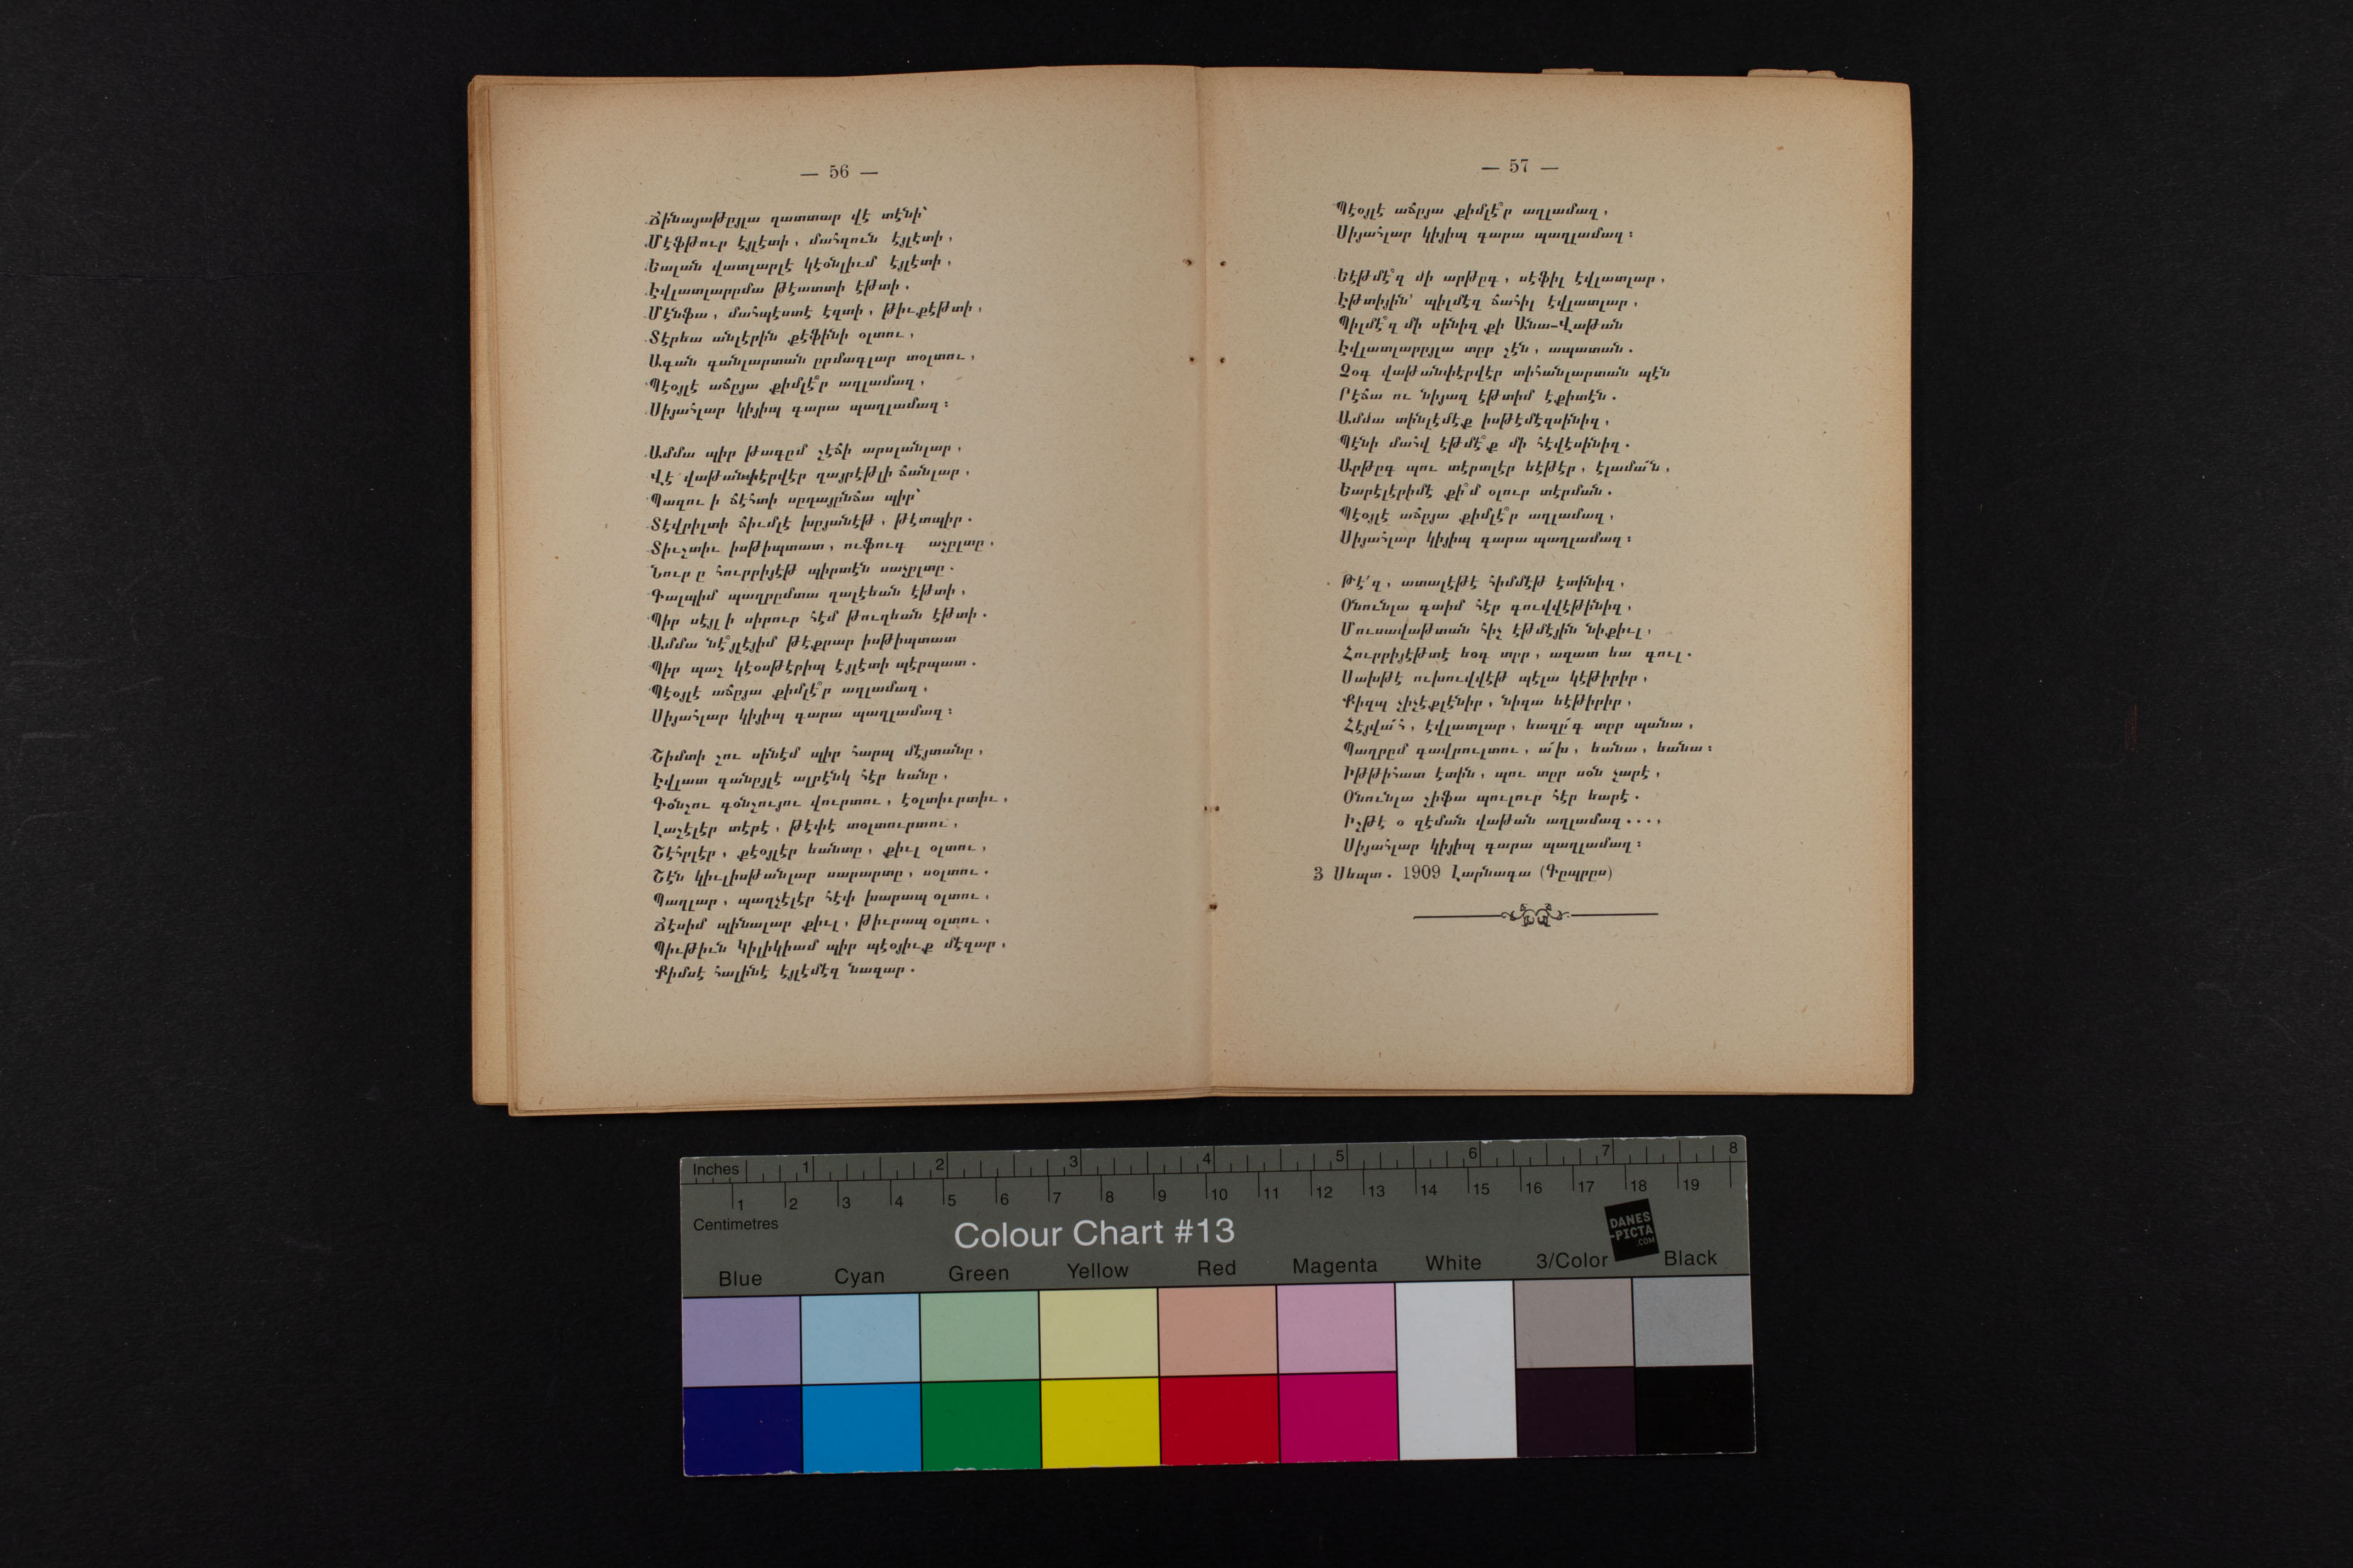 — 56 —
Ճինայաթըյլա ղատտար վէ տէնի՝
Մէֆթուր էյլէտի, մահզուն էյլէտի,
Եալան վատլարլէ կէօնլիւմ էյլէտի,
Էվլատլարըմա թէատտի էթտի.
Մէնֆա, մահպէստէ էզտի, թիւքէթտի,
Տէրեա անլէրին քէֆինի օլտու,
Ագան գանլարտան ըրմագլար տօլտու,
Պէօյլէ աճըյա քիմլէ՞ր աղլամազ,
Սիյահլար կիյիպ գարա պաղլամազ։
Ամմա պիր թագըմ չէճի արսլանլար,
Վէ վաթանփէրվէր ղայրէթլի ճանլար,
Պազու ի ճէհտի սըղայընճա պիր՝
Տէվրիլտի ճիւմլէ խըյանէթ, թէտպիր.
Տիւշտիւ իսթիպտատ, ուֆուգ աչըլտը,
Նուր ը հուրրիյէթ պիրտէն սաչըլտը.
Գալպիմ պաղրըմտա ղալէեան էթտի,
Պիր սէյլ ի սիրուր հէմ թուղեան էթտի.
Ամմա նէ՞յլէյիմ թէքրար իսթիպտատ
Պիր պաշ կէօսթէրիպ էյլէտի պէրպատ.
Պէօյլէ աճըյա քիմլէ՞ր աղլամազ,
Սիյահլար կիյիպ գարա պաղլամազ։
Շիմտի շու սինէմ պիր հարպ մէյտանը,
Էվլատ գանըյլէ ալրէնկ հէր եանը,
Գօնշու գօնշույու վուրտու, էօլտիւրտիւ,
Լաշէլէր տէրէ, թէփէ տօլտուրտու,
Շէհրլէր, քէօյլէր եանտը, քիւլ օլտու,
Շէն կիւլիսթանլար սարարտը, սօլտու.
Պաղլար, պաղչէլէր հէփ խարապ օլտու,
Ճէսիմ պինալար քիւլ, թիւրապ օլտու,
Պիւթիւն Կիլիկիամ պիր պէօյիւք մէզար,
Քիմսէ հալինէ էյլէմէզ նազար.
— 57 —
Պէօյլէ աճըյա քիմլէ՞ր աղլամազ,
Սիյահլար կիյիպ գարա պաղլամազ։
Եէթմէ՞զ մի արթըգ, սէֆիլ էվլատլար,
Էթտիյին՝ պիլմէզ ճահիլ էվլատլար,
Պիլմէ՞զ մի սինիզ քի Անա-Վաթան
Էվլատլարըյլա տըր շէն, ապատան.
Չօգ վաթանփէրվէր տիհանլարտան պէն
Րէճա ու նիյազ էթտիմ էքիտէն.
Ամմա տինլէմէք իսթէմէզսինիզ,
Պէնի մահվ էթմէ՞ք մի հէվէսինիզ.
Արթըգ պու տէրտլէր եէթէր, էլամա՜ն,
Եարէլէրիմէ քի՞մ օլուր տէրման.
Պէօյլէ աճըյա քիմլէ՞ր աղլամազ,
Սիյահլար կիյիպ գարա պաղլամազ։
Թէ՛զ, ատալէթէ հիմմէթ էտինիզ,
Օնունլա գաիմ հէր գուվվէթինիզ,
Մուսավաթտան հիչ էթմէյին նիքիւլ,
Հուրրիյէթտէ եօգ տըր, ազատ եա գուլ.
Սախթէ ուխուվվէթ պէլա կէթիրիր,
Քիզպ չիչէքլէնիր, նիզա եէթիրիր,
Հէյվա՜հ, էվլատլար, եազը՜գ տըր պանա,
Պաղրըմ գավրուլտու, ա՜խ, եանա, եանա։
Իթթիհատ էտին, պու տըր սօն չարէ,
Օնունլա շիֆա պուլուր հէր եարէ.
Իշթէ օ զէման վաթան աղլամազ...,
Սիյահլար կիյիպ գարա պաղլամազ։
3 Սեպտ. 1909 Լարնագա (Գըպրըս)
Inches 1 2 3 4 5 6 7 8
1 2 3 4 5 6 7 8 9 10 11 12 13 14 15 16 17 18 19
Centimetres
Colour Chart #13
DANES
-PICTA
.COM
Blue Cyan Green Yellow Red Magenta White 3/Color Black